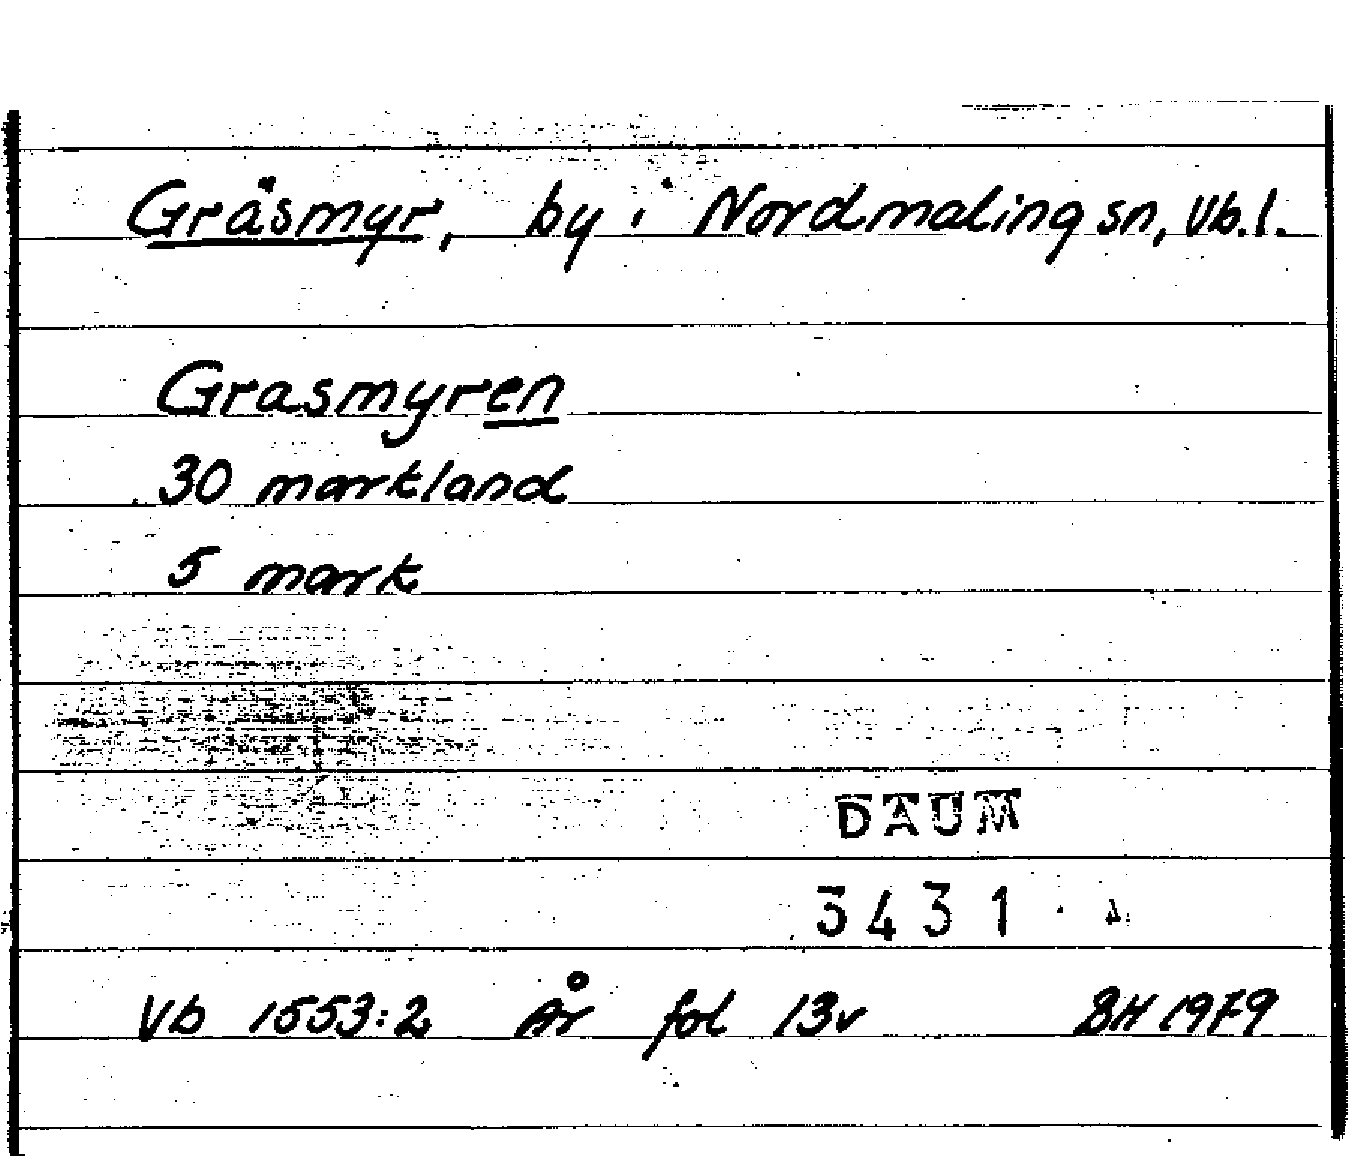 Gräsmyr, by i Nordmaling sn, Vb. l.
Grasmyren
30 markland
5 mark
DAUM
3431
Vb 1553:2 År fol 13v BH 1979